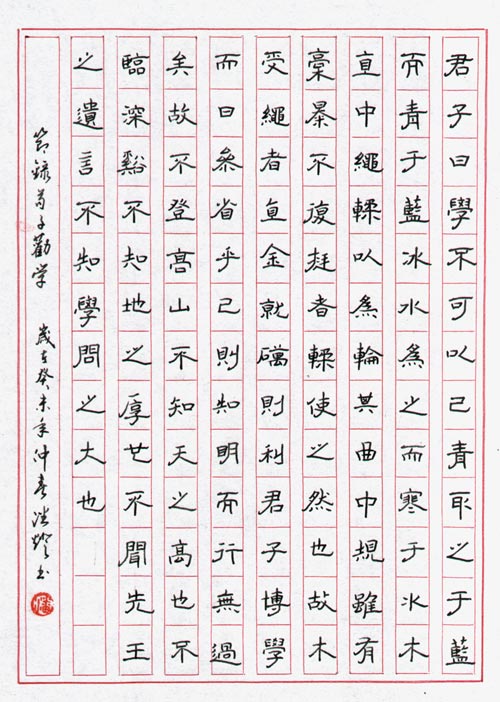 君子曰學不可以已青取之于藍
而青于藍冰水爲之而寒于水木
直中繩輮以爲輪其曲中規雖有
槀暴不復挺者輮使之然也故木
受繩者直金就礪則利君子博學
而日參省乎己則知明而行無過
矣故不登高山不知天之高也不
臨深谿不知地之厚也不聞先王
之遺言不知學問之大也
節錄荀子勸学 歲在癸未年仲春 書